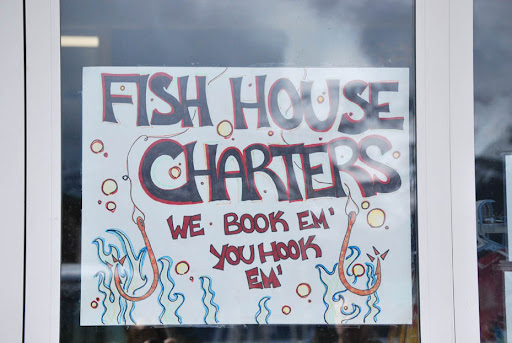 FISH HOUSE
CHARTERS
WE · BOOK EM'
YOU HOOK
EM'